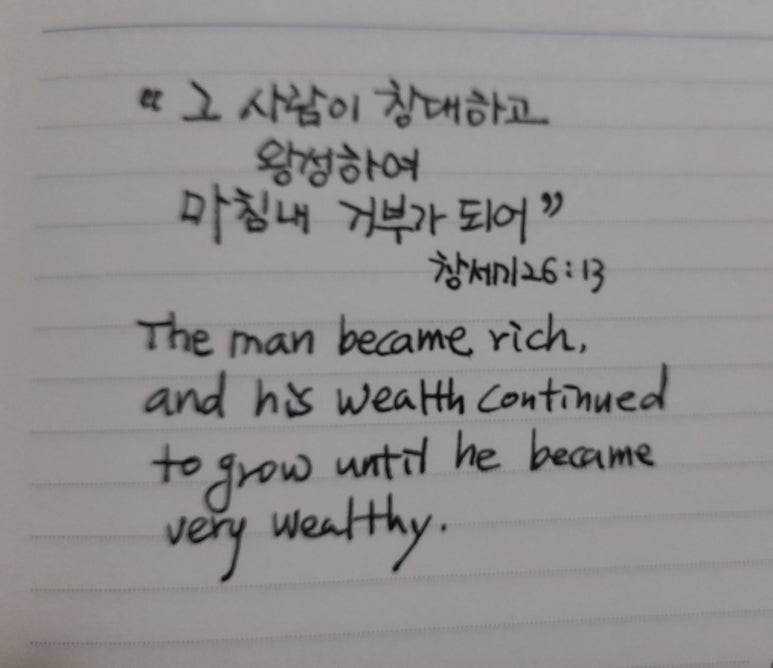 “ 그 사람이 창대하고
왕성하여
마침내 거부가 되어”
창세기26:13
The man became rich,
and his wealth continued
to grow until he became
very wealthy.